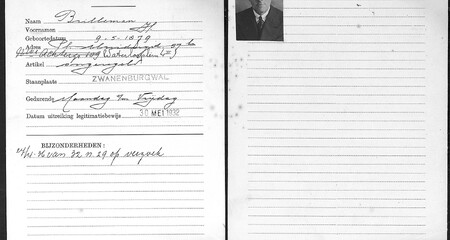 Naam Brilleman
Voornaam H.
Geboortedatum 9-5-1879
Adres
109 Waterlooplein
Artikel ongeregeld
Staanplaats ZWANENBURGWAL
Gedurende Maandag t/m Vrijdag
Datum uitreiking legitimatiebewijs 30 MEI 1932
BIJZONDERHEDEN:
van 32 n 29 op verzoek